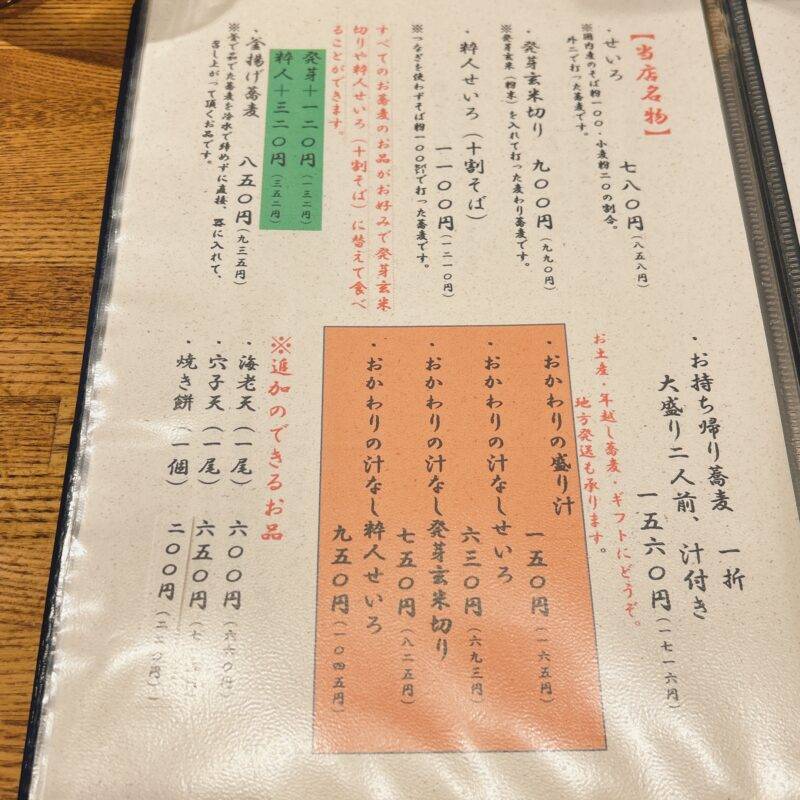 【当店名物】
・せいろ 七八〇円(八五八円)
※国内産のそば粉一〇〇・小麦粉二〇の割合。
外二で打った蕎麦です。
・発芽玄米切り 九〇〇円(九九〇円)
※発芽玄米(粉末)を入れて打った変わり蕎麦です。
・粋人せいろ(十割そば)
一一〇〇円(一二一〇円)
※つなぎを使わずそば粉一〇〇%で打った蕎麦です。
すべてのお蕎麦のお品がお好みで発芽玄米
切りや粋人せいろ(十割そば)に替えて食べ
ることができます。
発芽+一二〇円(一三二円)
粋人+三二〇円(三五二円)
・釜揚げ蕎麦 八五〇円(九三五円)
※釜で茹でた蕎麦を冷水で締めずに直接、器に入れて、
召し上がって頂くお品です。
・お持ち帰り蕎麦 一折
大盛り二人前、汁付き
一五六〇円(一七一六円)
お土産・年越し蕎麦・ギフトにどうぞ。
地方発送も承ります。
・おかわりの盛り汁
一五〇円(一六五円)
・おかわりの汁なしせいろ
六三〇円(六九三円)
・おかわりの汁なし発芽玄米切り
七五〇円(八二五円)
・おかわりの汁なし粋人せいろ
九五〇円(一〇四五円)
※追加のできるお品
・海老天(一尾) 六〇〇円(六六〇円)
・穴子天(一尾) 六五〇円
・焼き餅(一個) 二〇〇円(二二〇円)